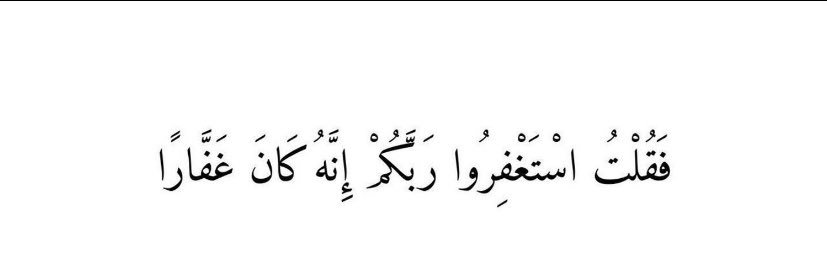 فَقُلْتُ اسْتَغْفِرُوا رَبَّكُمْ إِنَّهُ كَانَ غَفَّارًا